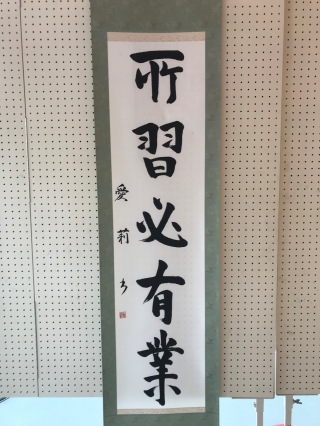 所習必有業
愛莉書